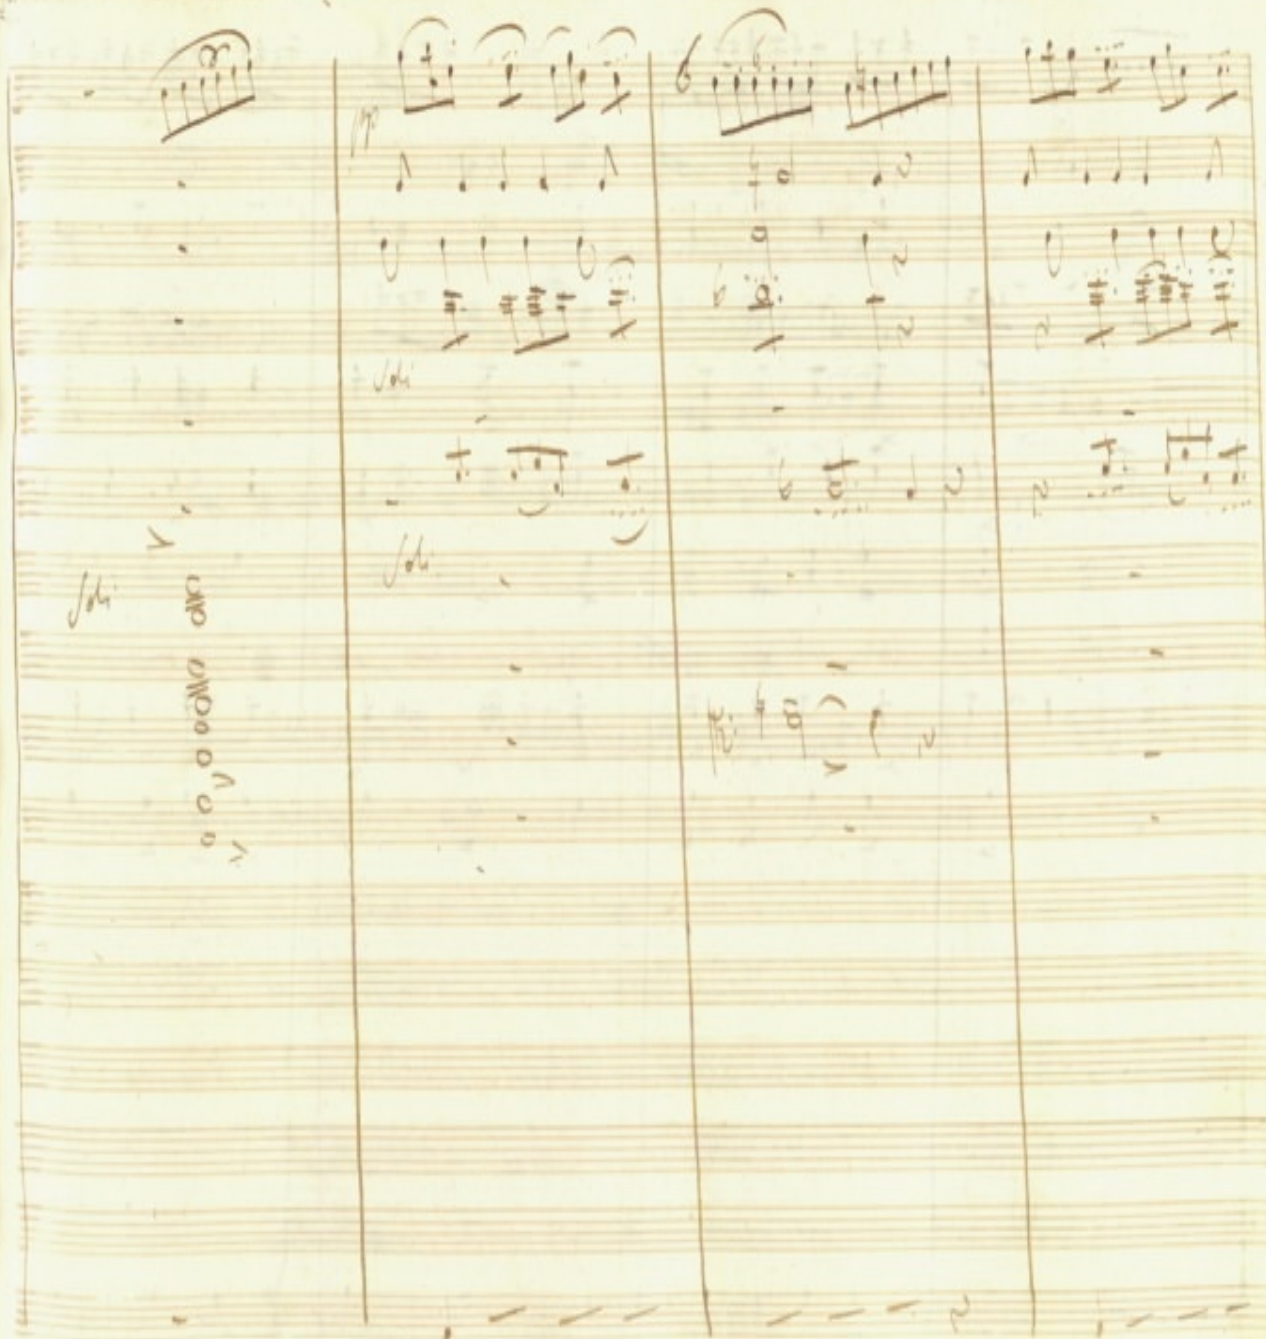 pp
Soli
Soli
Soli